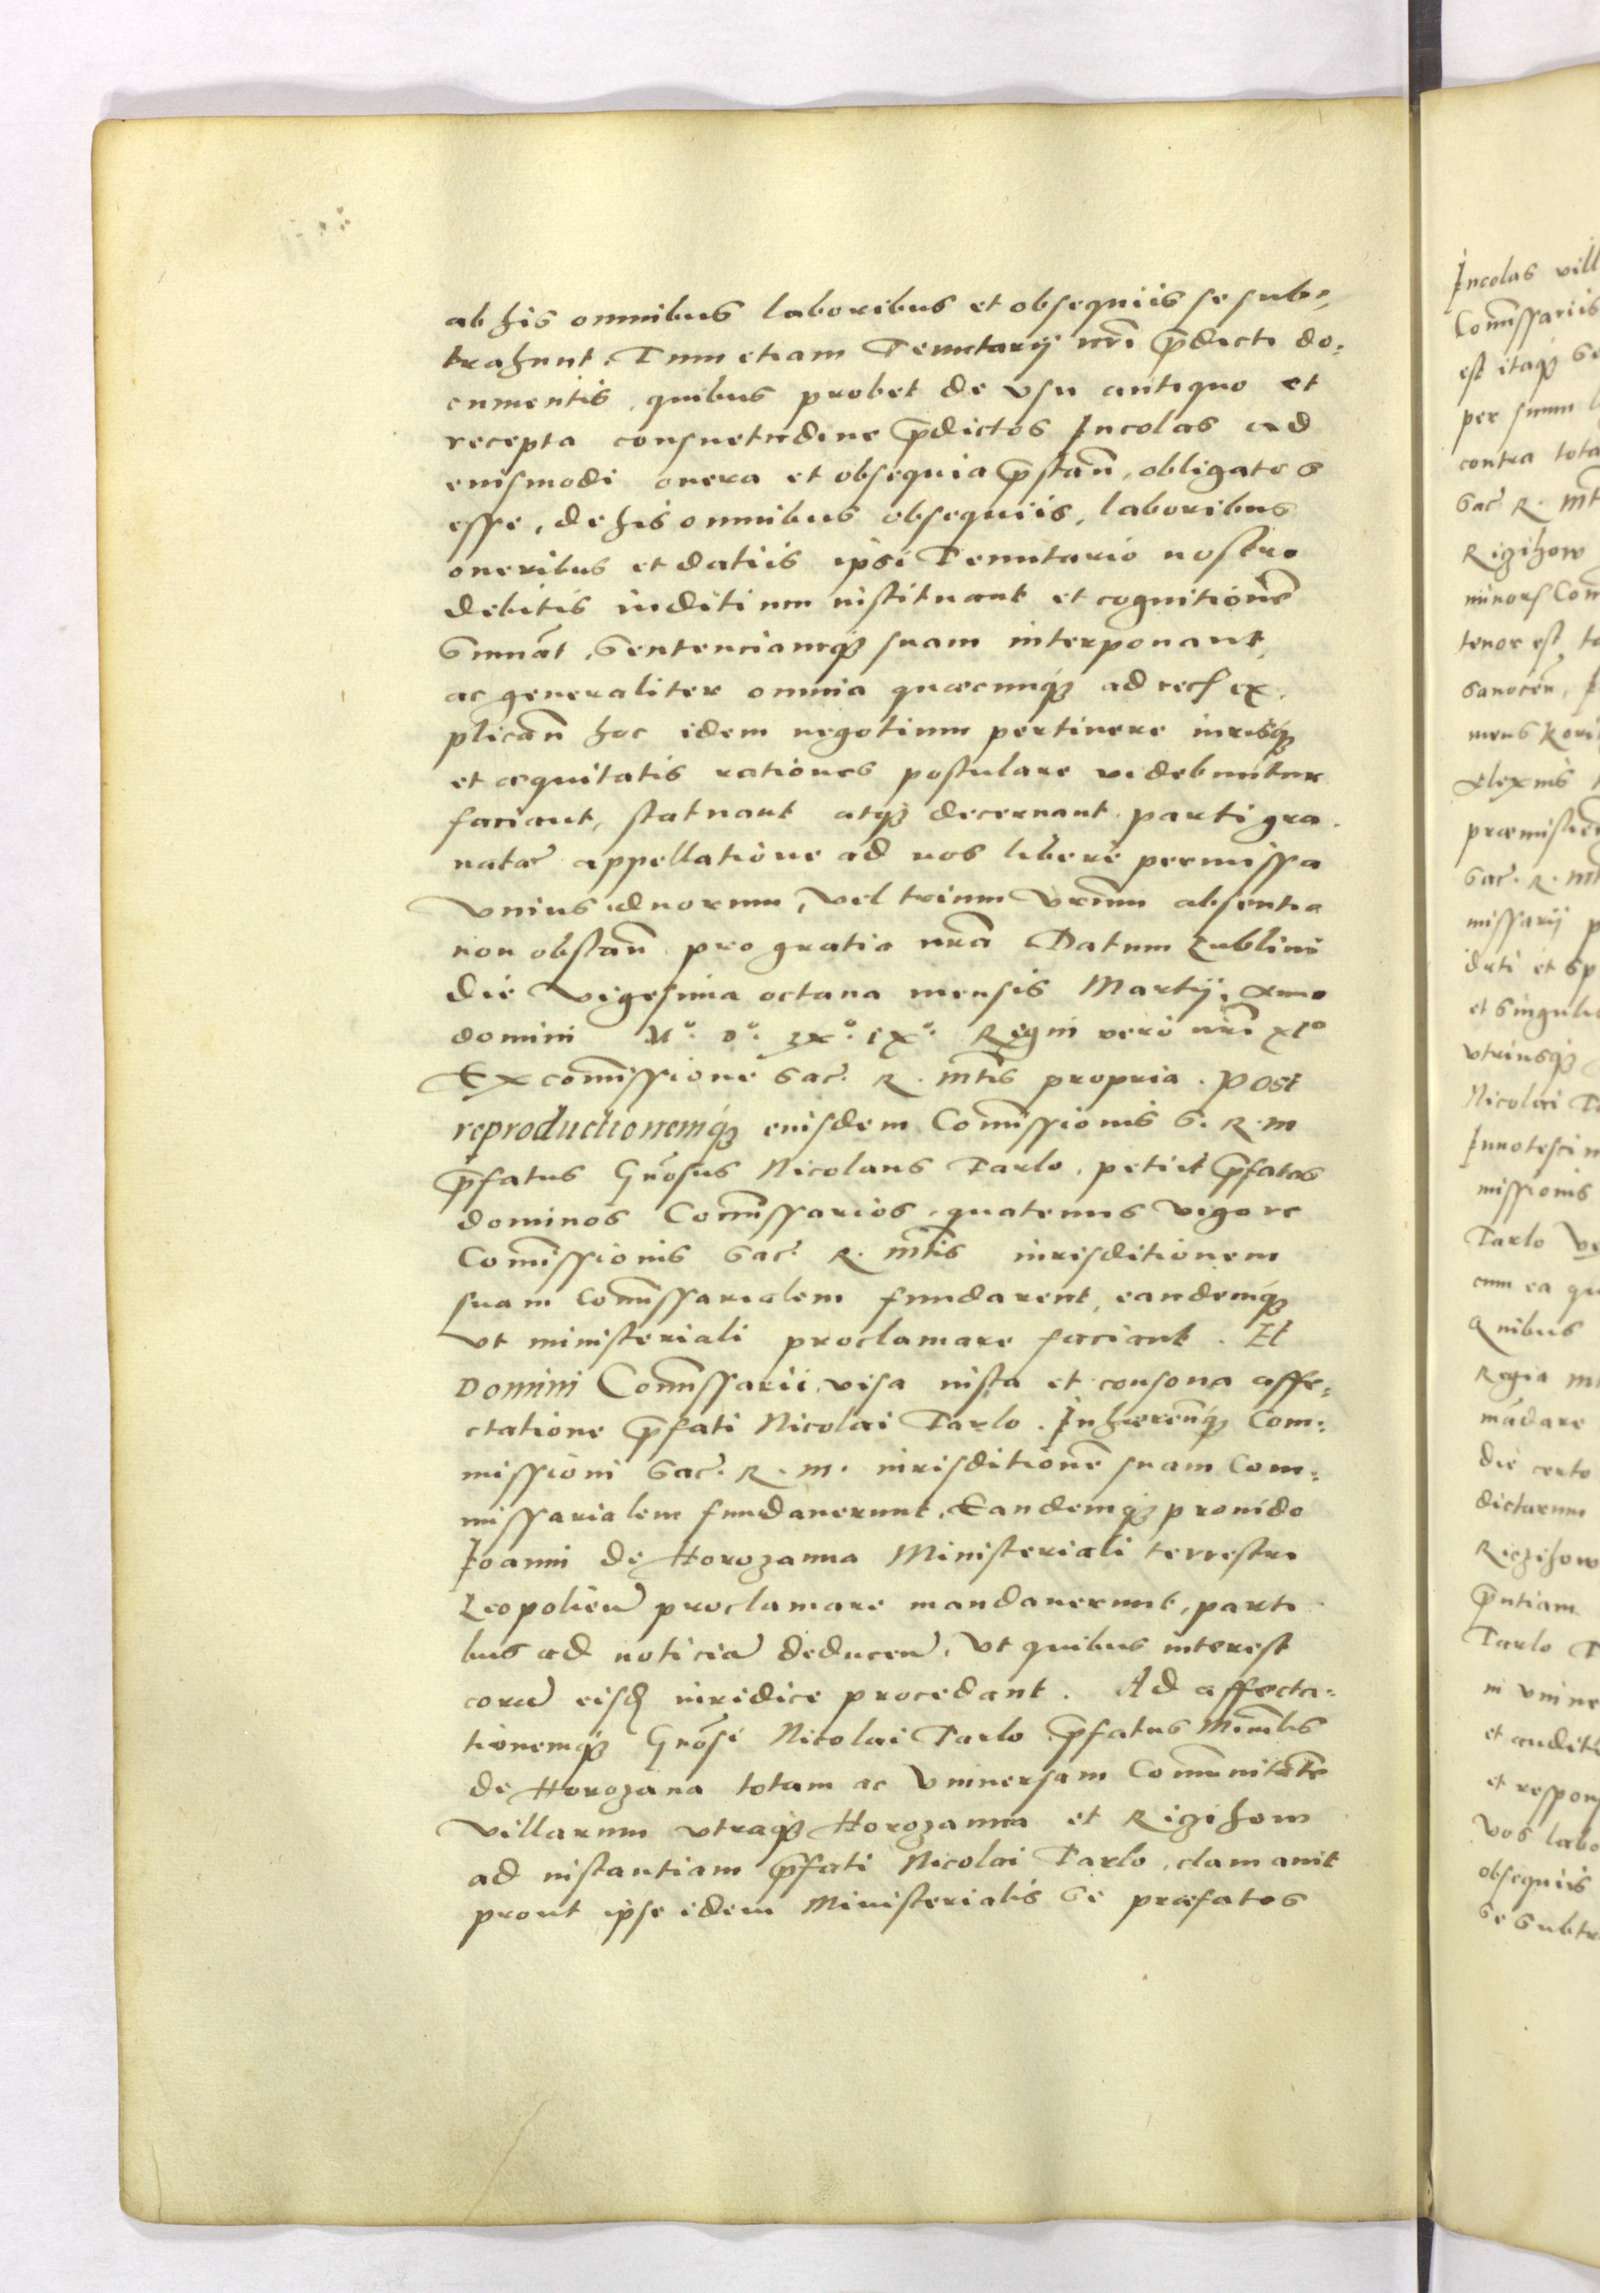 ab his omnibus laboribus et obsequiis se sub=
trahunt. Tum etiam Tenutarij nri p̃dicti do=
cumentis, quibus probet de vsu antiquo et
recepta consuetudine p̃dictos Incolas ad
euismodi onera et obsequia p̃stan̄, obligatos
esse, de his omnibus obsequiis, laboribus
oneribus et datiis ipsi Tenutario nostro
debitis iuditium instituant et cognitionē
sumāt, Sentenciamq₃ suam interponant,
ac generaliter omnia quæcunq₃ ad ex=
plican̄ hoc idem negotium pertinere iurisq₃
et æquitatis rationes postulare videbuntur
faciant, statuant atq₃ decernant, parti gra=
uatæ appellatione ad nos libere permissa
Vnius duorum, vel trium vrum absentia
non obstan̄ pro gratia nrā Datum Lublini
die Vigesima octaua mensis Martij, Anno
domini M°. D°. LX°. IX°. Regni vero nri XL°
Ex com̄issione Sac. R. Mtis propria. Post
reproductionemq₃ euisdem Com̄issionis S. R. M
p̃fatus Gn̄osus Nicolaus Tarlo, petiit p̃fatos
dominos Com̄issarios, quatenus vigore
Com̄issionis Sac. R. Mtis iurisditionem
suam Com̄issarialem fundarent, eandemq₃
vt ministeriali proclamare faciant. Et
Domini Com̄issarii, visa iusta et consona affe=
ctatione p̃fati Nicolai Tarlo. Inhæren̄q₃ Com=
missioni Sac. R. M. iurisditionē suam Com=
missarialem fundauerunt, Eandemq₃ prouido
Ioanni de Horozanna Ministeriali terrestri
Leopolien̄ proclamare mandauerunt, parti=
bus ad noticiā deducen̄, Vt quibus interest
corā eisd iuridice procedant. Ad affecta=
tionemq₃ Gn̄osi Nicolai Tarlo p̃fatus Minrlis
de Horozana totam ac Vniuersam Com̄unitatē
Villarum vtraq₃ Horozanna et Rigihow
ad instantiam p̃fati Nicolai Tarlo, clamauit
prout ipse idem Ministerialis se præfatos
Incolas vill
Com̄issariis
est itaq₃ se
per suum
contra tota
Sac R. Mt
Rizihow
tenor est
Alexius
Sac. R. M
missarij p
et singul
vtriusq₃
Nicolai Ta
Innotesci
missionis
Tarlo
cum ea qu
Quibus
Regia
mādare
die certo
dictarum
Reczihow
p̃ntiam
Tarlo T
et audit
et respon
Vos labo
obsequiis
se subtr